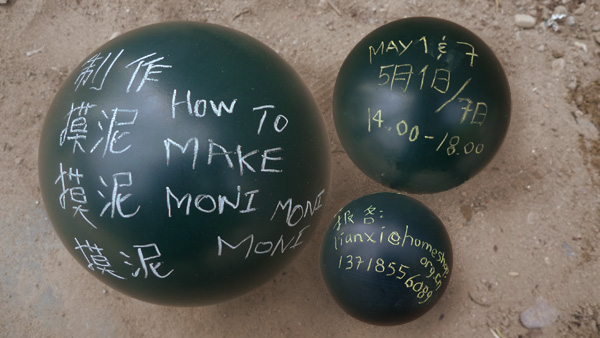 制作
摸泥
摸泥
摸泥
HOW TO
MAKE
MONI MONI
MONI
MAY 1 & 7
5月1日/7日
14.00-18.00
报名:
lianxi@homeshop
org.cn
13718556089